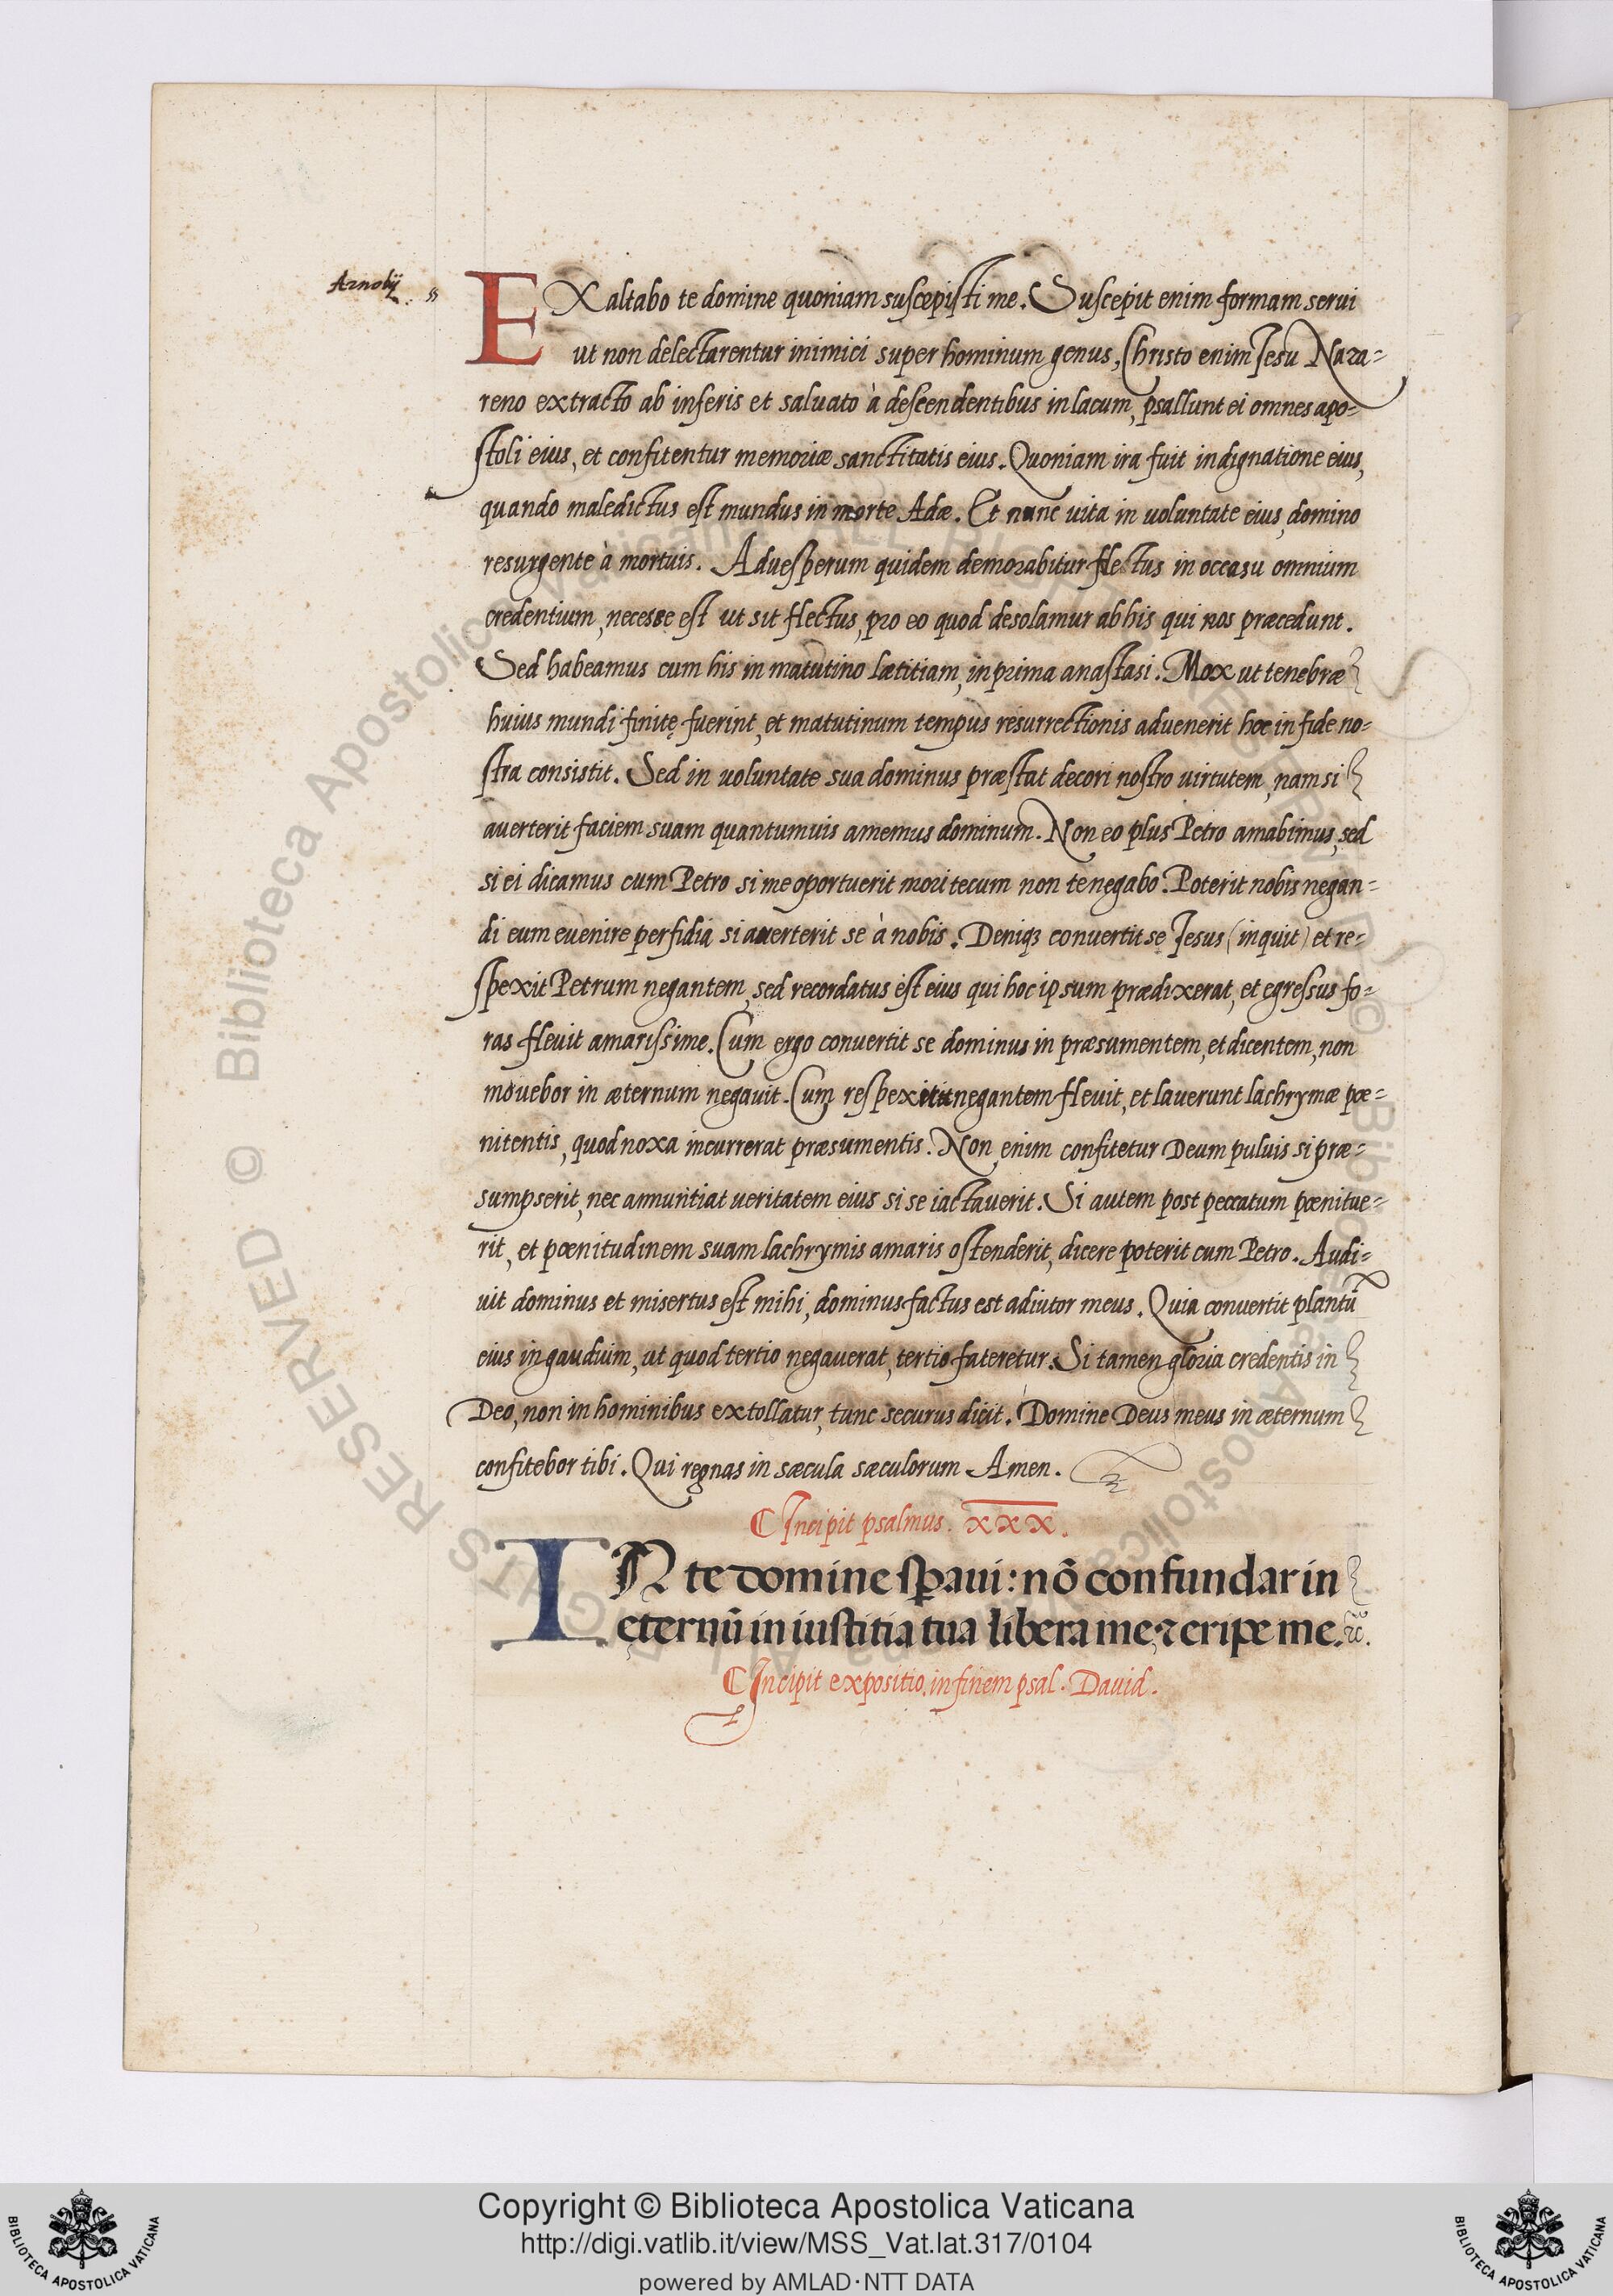 Arnobij
EXaltabo te domine quoniam suscepisti me. Suscepit enim formam serui
ut non delectarentur inimici super hominum genus, Christo enim Jesu Naza=
reno extracto ab inferis et saluato à descendentibus in lacum, psallunt ei omnes apo=
stoli eius, et confitentur memoriæ sanctitatis eius. Quoniam ira fuit indignatione eius,
quando maledictus est mundus in morte Adæ. Et nunc uita in uoluntate eius, domino
resurgente à mortuis. Ad uesperum quidem demorabitur flectus in occasu omnium
credentium, necesse est ut sit flectus, pro eo quod desolamur ab his qui nos præcedunt.
Sed habeamus cum his in matutino lætitiam, in prima anastasi. Mox ut tenebræ
huius mundi finitę fuerint, et matutinum tempus resurrectionis aduenerit hoc in fide no=
stra consistit. Sed in uoluntate sua dominus præstat decori nostro uirtutem, nam si
auerterit faciem suam quantumuis amemus dominum. Non eo plus Petro amabimus, sed
si ei dicamus cum Petro si me oportuerit mori tecum non te negabo. Poterit nobis negan=
di eum euenire perfidia si auerterit se à nobis. Deniqꝫ conuertit se Jesus (inquit) et re=
spexit Petrum negantem, sed recordatus est eius qui hoc ipsum prædixerat, et egressus fo=
ras fleuit amarissime. Cum ergo conuertit se dominus in præsumentem, et dicentem, non
mouebor in æternum negauit. Cum respexit negantem fleuit, et lauerunt lachrymæ pœ=
nitentis, quod noxa incurrerat præsumentis. Non enim confitetur Deum puluis si præ=
sumpserit, nec annuntiat ueritatem eius si se iactauerit. Si autem post peccatum pœnitue=
rit, et pœnitudinem suam lachrymis amaris ostenderit, dicere poterit cum Petro. Audi=
uit dominus et misertus est mihi, dominus factus est adiutor meus. Quia conuertit plantū
eius in gaudium, ut quod tertio negauerat, tertio fateretur. Si tamen gloria credentis in
Deo, non in hominibus extollatur, tunc securus dicit. Domine Deus meus in æternum
confitebor tibi. Qui regnas in sæcula sæculorum Amen.
Incipit psalmus. xxx.
IN te domine sꝑaui: nō confundar in
ęternū in iustitia tua libera me, ⁊ eripe me. ⁊c̄.
Incipit expositio. in finem psal. Dauid.
© Biblioteca Apostolica Vaticana
ALL RIGHTS RESERVED
Copyright © Biblioteca Apostolica Vaticana
http://digi.vatlib.it/view/MSS_Vat.lat.317/0104
powered by AMLAD·NTT DATA
BIBLIOTECA APOSTOLICA VATICANA
BIBLIOTECA APOSTOLICA VATICANA